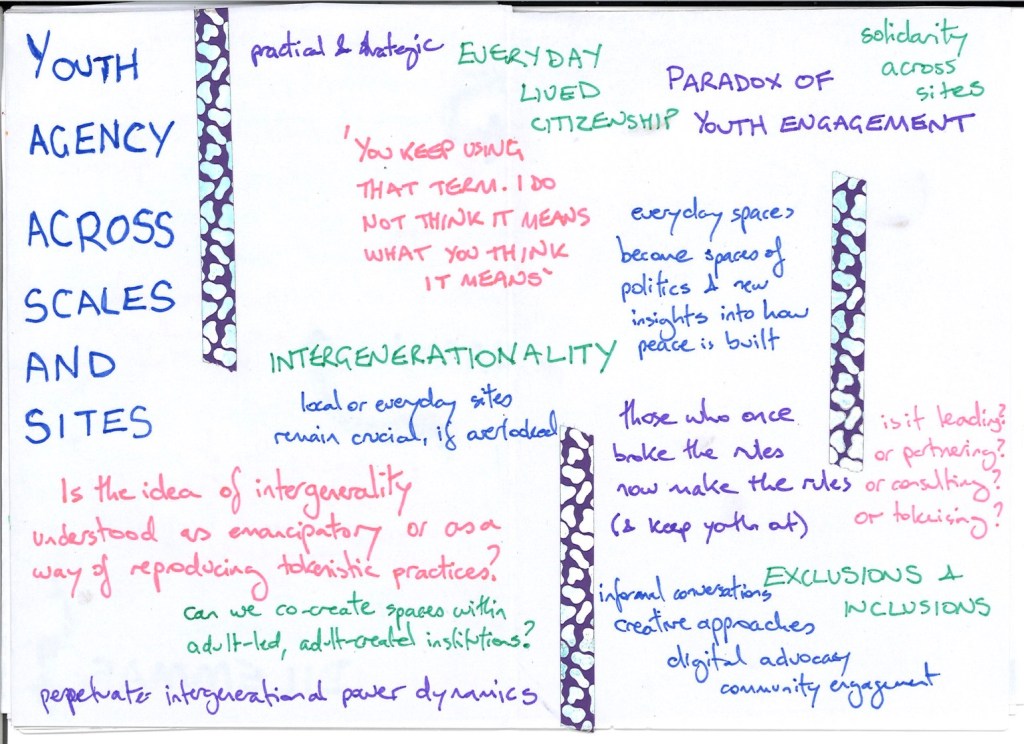 YOUTH
AGENCY
ACROSS
SCALES
AND
SITES
practical & strategic
EVERYDAY
LIVED
CITIZENSHIP
PARADOX OF
YOUTH ENGAGEMENT
solidarity
across
sites
'YOU KEEP USING
THAT TERM. I DO
NOT THINK IT MEANS
WHAT YOU THINK
IT MEANS'
everyday spaces
become spaces of
politics & new
insights into how
peace is built
INTERGENERATIONALITY
local or everyday sites
remain crucial, if overlooked
those who once
broke the rules
now make the rules
(& keep youth out)
is it leading?
or partnering?
or consulting?
or tokenising?
Is the idea of intergenerality
understood as emancipatory or as a
way of reproducing tokenistic practices?
can we co-create spaces within
adult-led, adult-created institutions?
perpetuate intergenerational power dynamics
EXCLUSIONS &
INCLUSIONS
informal conversations
creative approaches
digital advocacy
community engagement